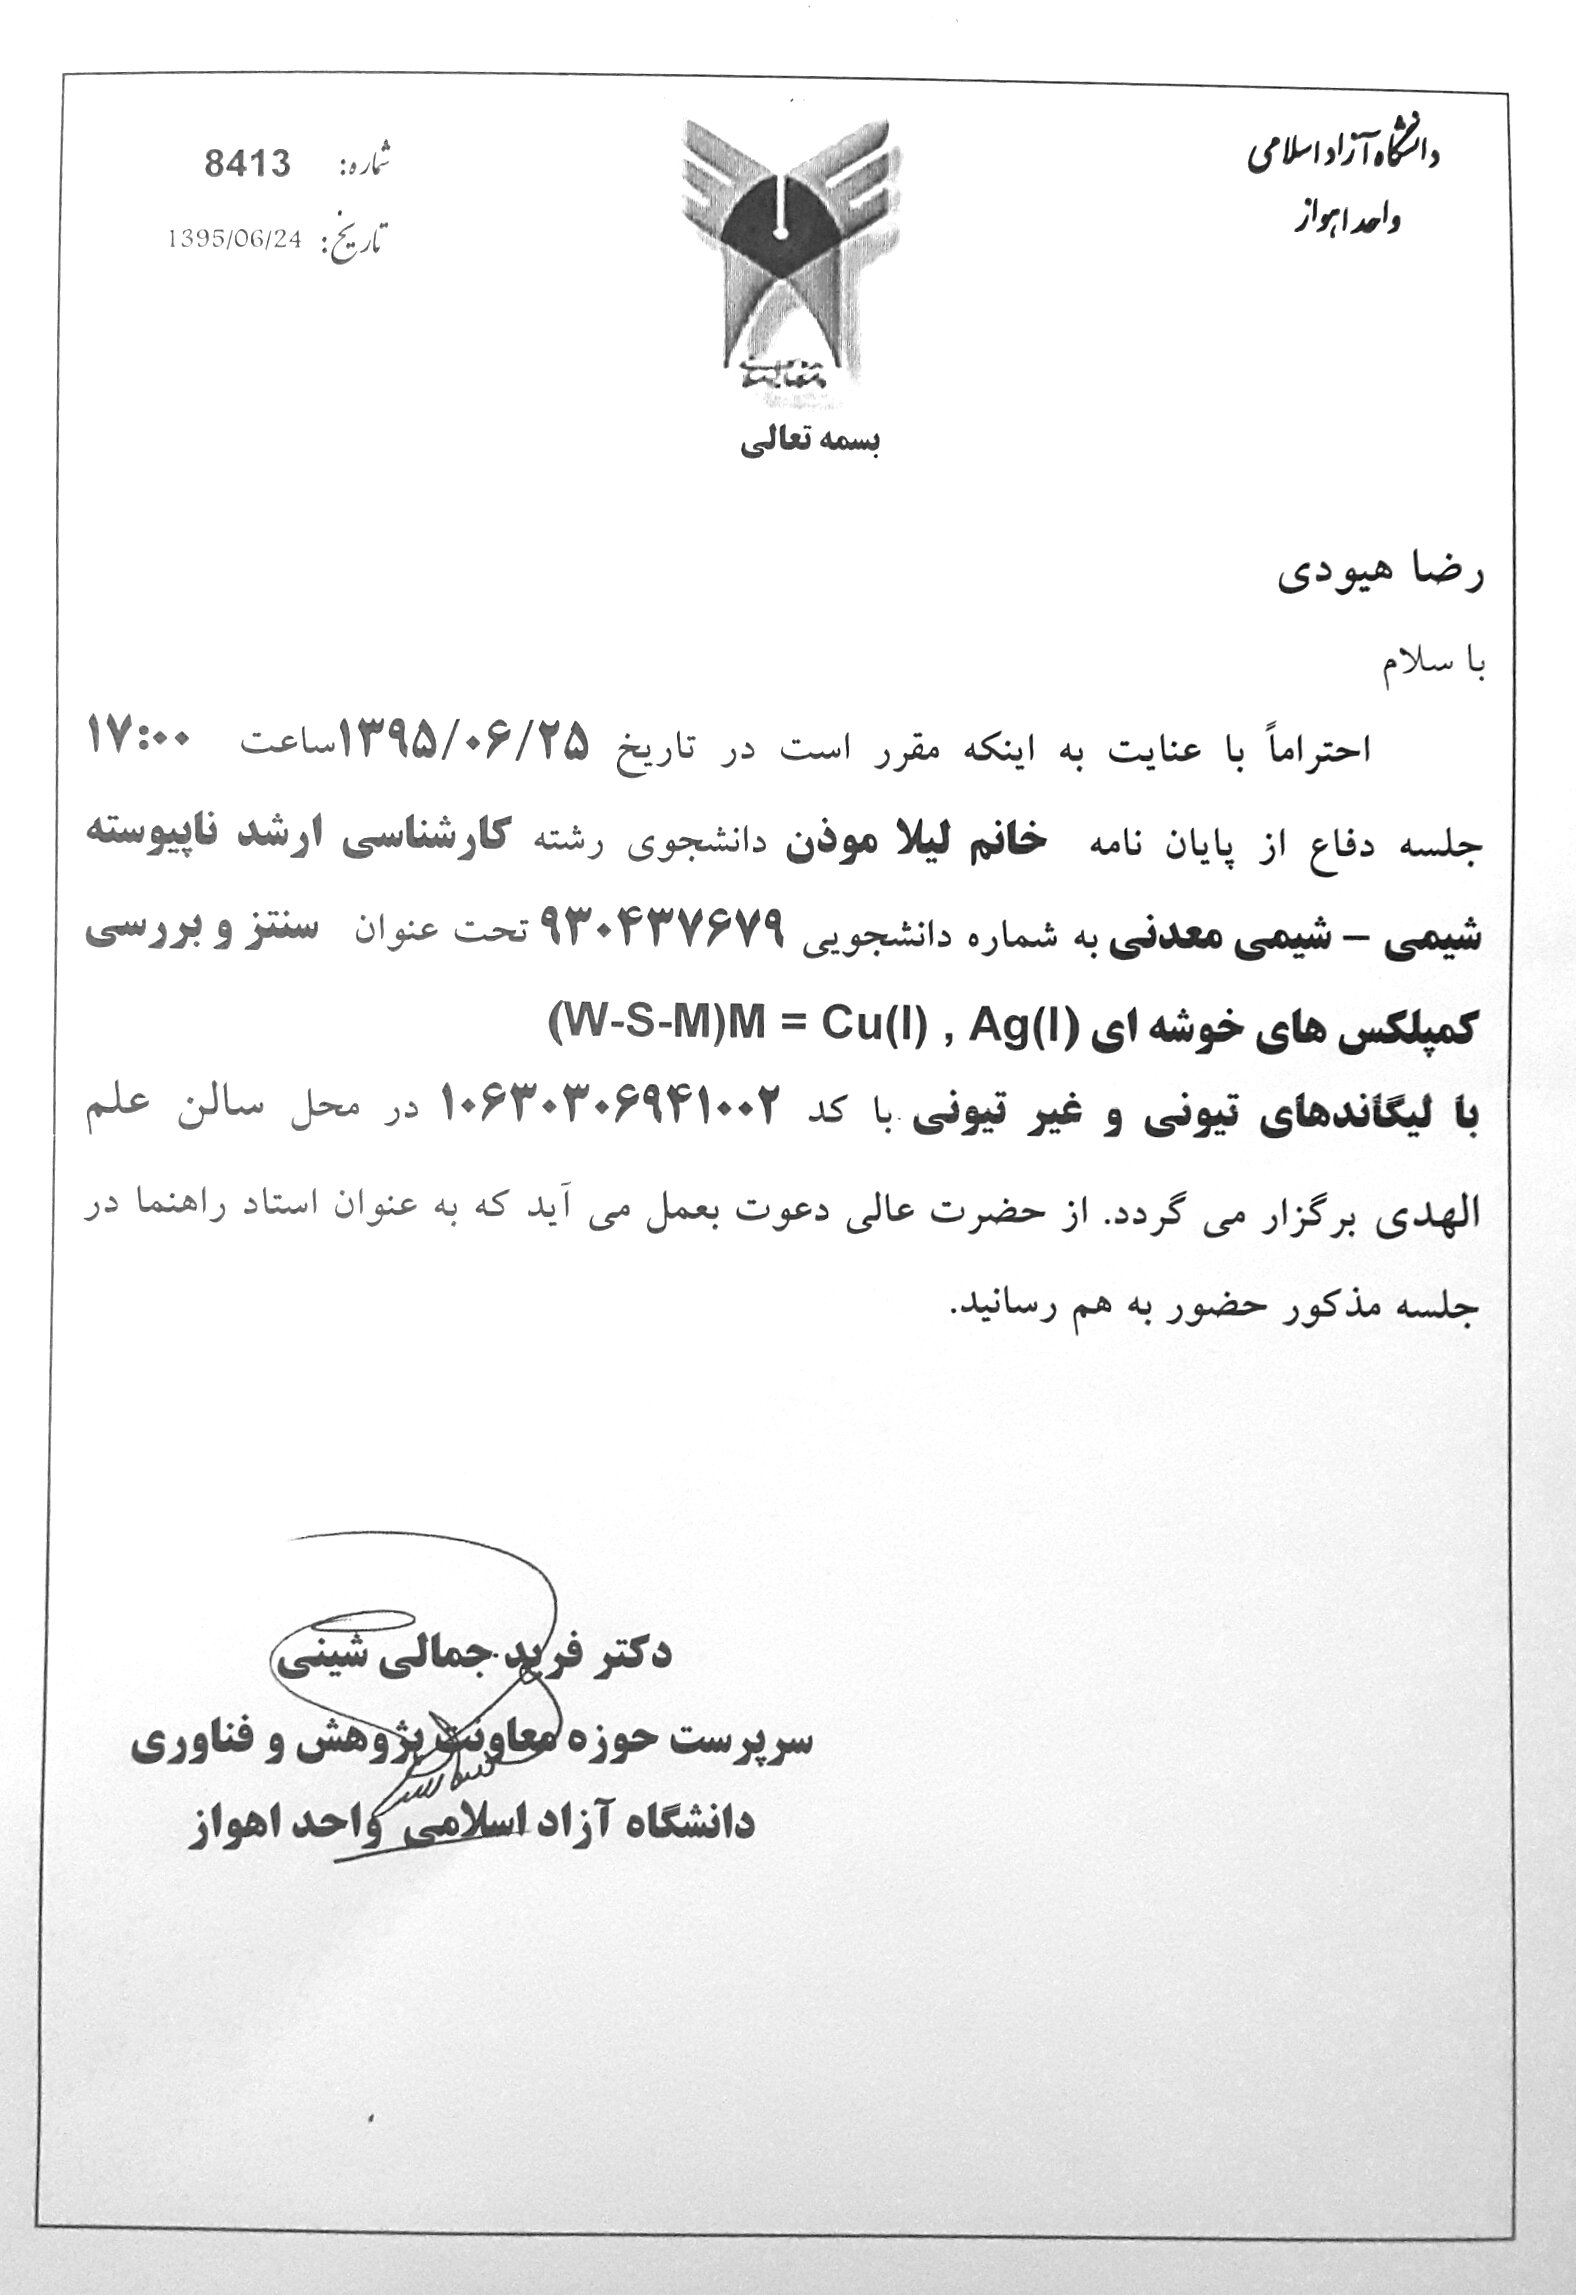 دانشگاه آزاد اسلامی
واحد اهواز
شماره: 8413
تاریخ: 1395/06/24
بسمه تعالی
رضا هیودی
با سلام
احتراماً با عنایت به اینکه مقرر است در تاریخ ۱۳۹۵/۰۶/۲۵ساعت ۱۷:۰۰
جلسه دفاع از پایان نامه خانم لیلا موذن دانشجوی رشته کارشناسی ارشد ناپیوسته
شیمی – شیمی معدنی به شماره دانشجویی ۹۳۰۴۳۷۶۷۹ تحت عنوان سنتز و بررسی
کمپلکس های خوشه ای (W-S-M)M = Cu(I) , Ag(I)
با لیگاندهای تیونی و غیر تیونی با کد ۱۰۶۳۰۳۰۶۹۴۱۰۰۲ در محل سالن علم
الهدی برگزار می گردد. از حضرت عالی دعوت بعمل می آید که به عنوان استاد راهنما در
جلسه مذکور حضور به هم رسانید.
دکتر فرید جمالی شینی
سرپرست حوزه معاونت پژوهش و فناوری
دانشگاه آزاد اسلامی واحد اهواز